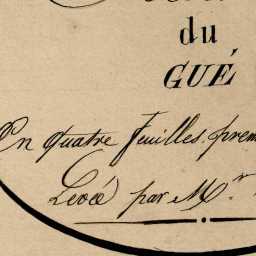 du
GUÉ
En quatre feuilles. prem
Levée par Mr.